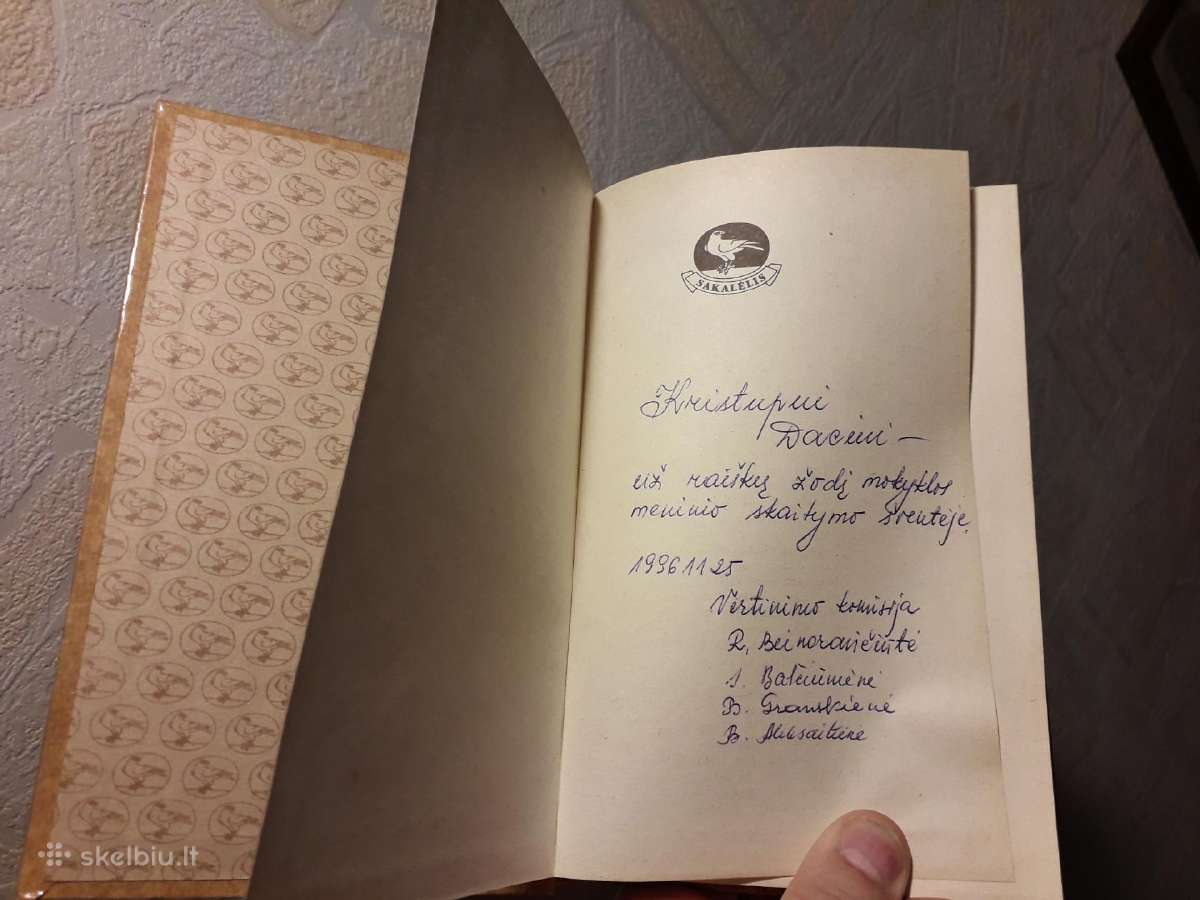 SAKALĖLIS
Kristupui
Daciui –
už raiškų žodį mokyklos
meninio skaitymo šventėje.
1996 11 25
Vertinimo komisija
R. Beinoravičiūtė
S. Balčiūnienė
B. Gramskienė
B.
skelbiu.lt